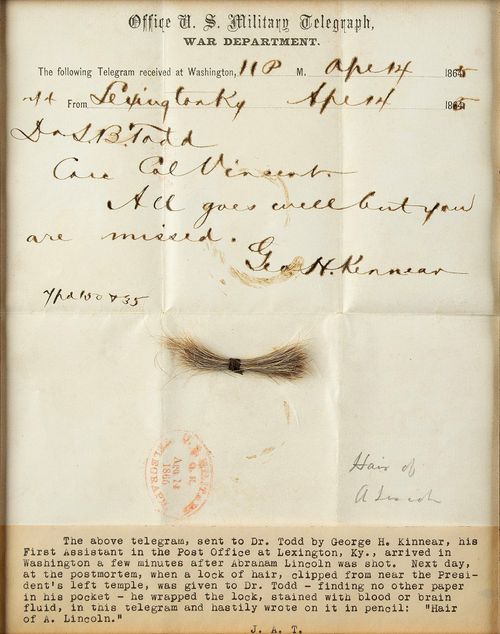 Office U. S. Military Telegraph,
WAR DEPARTMENT.
The following Telegram received at Washington, 11 P M. Apl 14 1865
From Lexington Ky Apl 14 1865
Dr L. B. Todd
Care Col Vincent.
All goes well but you
are missed.
Geo. H. Kennear
35
U. S. MILITARY
TELEGRAPH
Apr 14
1865
Hair of
A Lincoln
The above telegram, sent to Dr. Todd by George H. Kinnear, his
First Assistant in the Post Office at Lexington, Ky., arrived in
Washington a few minutes after Abraham Lincoln was shot. Next day,
at the postmortem, when a lock of hair, clipped from near the Presi-
dent's left temple, was given to Dr. Todd - finding no other paper
in his pocket - he wrapped the lock, stained with blood or brain
fluid, in this telegram and hastily wrote on it in pencil: "Hair
of A. Lincoln."
J. A. T.